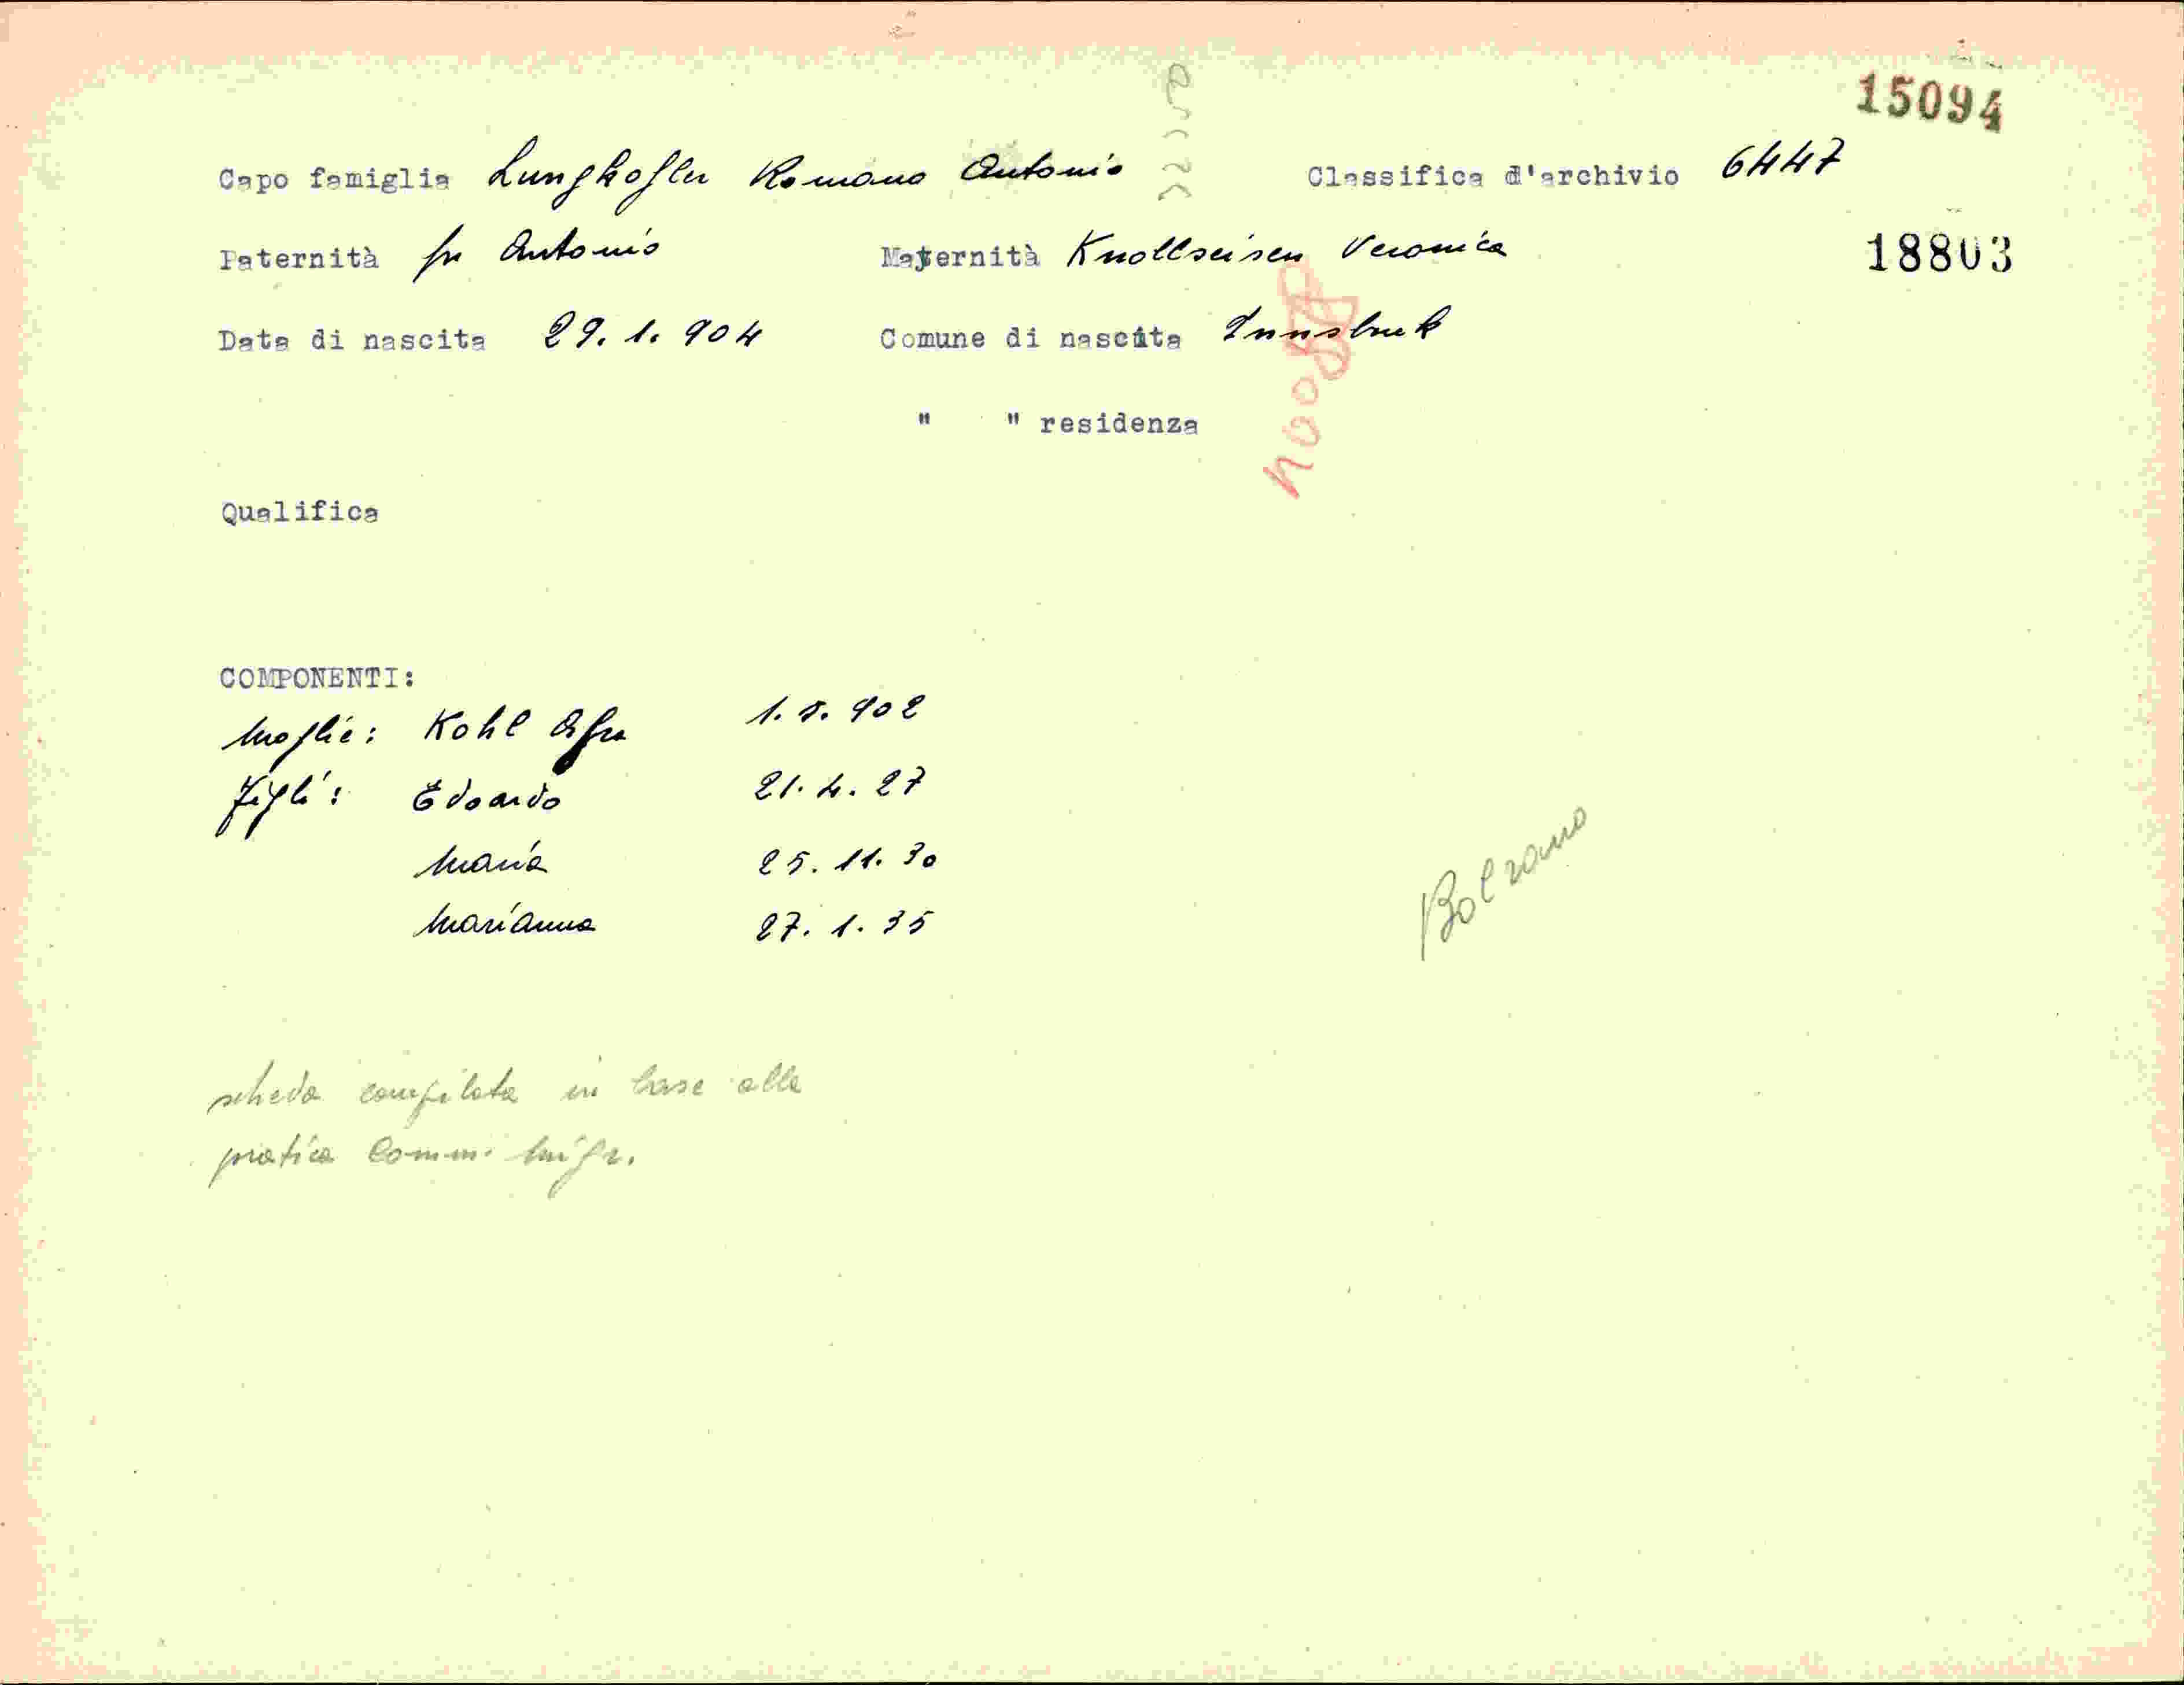 15094
Capo famiglia Lungkofler Romano Antonio Classifica d'archivio 6447
Paternità fu Antonio Maternità Knollseisen Veronica 18803
Data di nascita 29. 1. 904 Comune di nascita Innsbruk
" " residenza
Qualifica
COMPONENTI:
Moglie: Kohl Afra 1. 8. 902
Figli: Edoardo 21. 4. 27
Maria 25. 11. 30
Marianna 27. 1. 35
Bolzano
scheda compilata in base alla
pratica Comm. Migr.